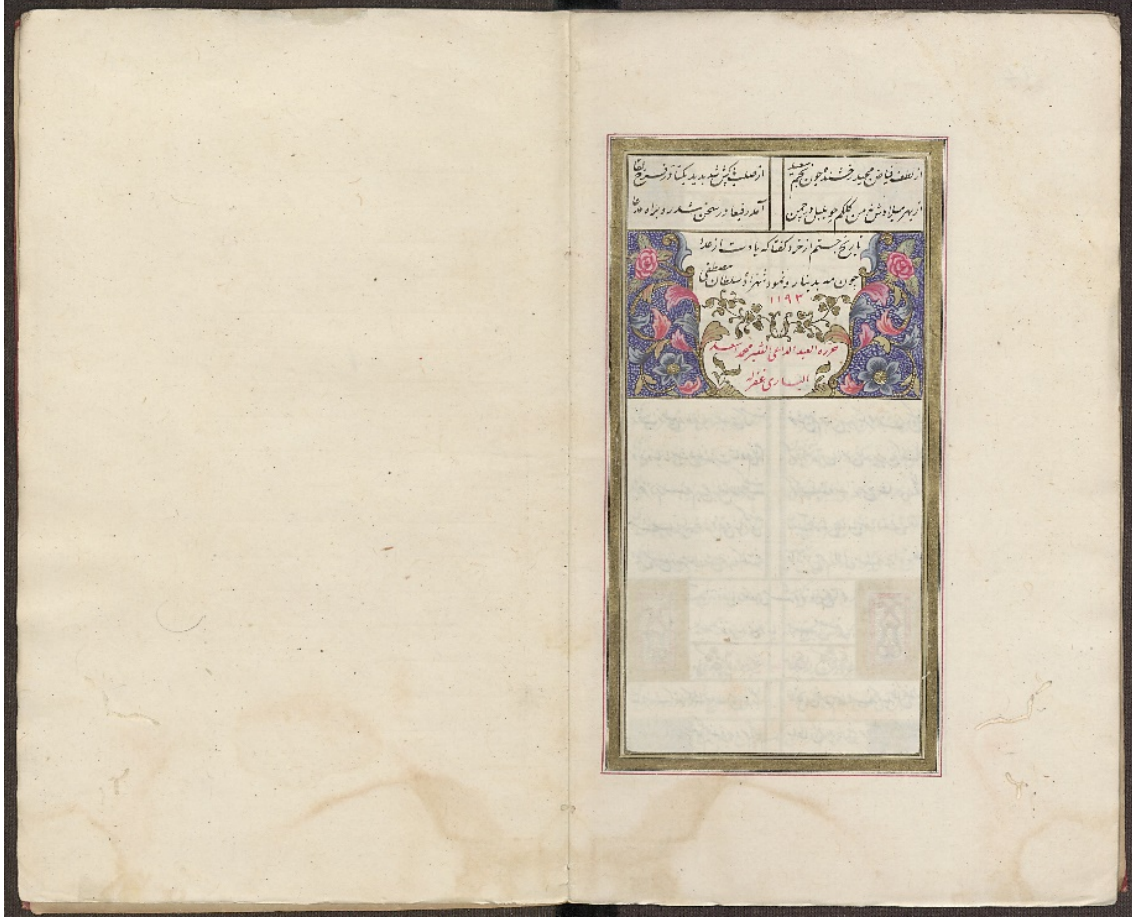 از لطف فیاض مجید رخشنده چون نجم سعید
از صلب پاکش شد بدید یکتا در فرخ لقا
از بهر میلادش شخ من کلکم چو بلبل در چمن
آمد رفیعا در سخن شد رو براه
تاریخ جستم از خرد گفتا که بادت از عدا
چون مه بدنیا رو نمود شهزاده سلطان مصطفی
۱۱۹۳
حرره العبد الداعی الفقیر محمد سعید
الیساری غفر له